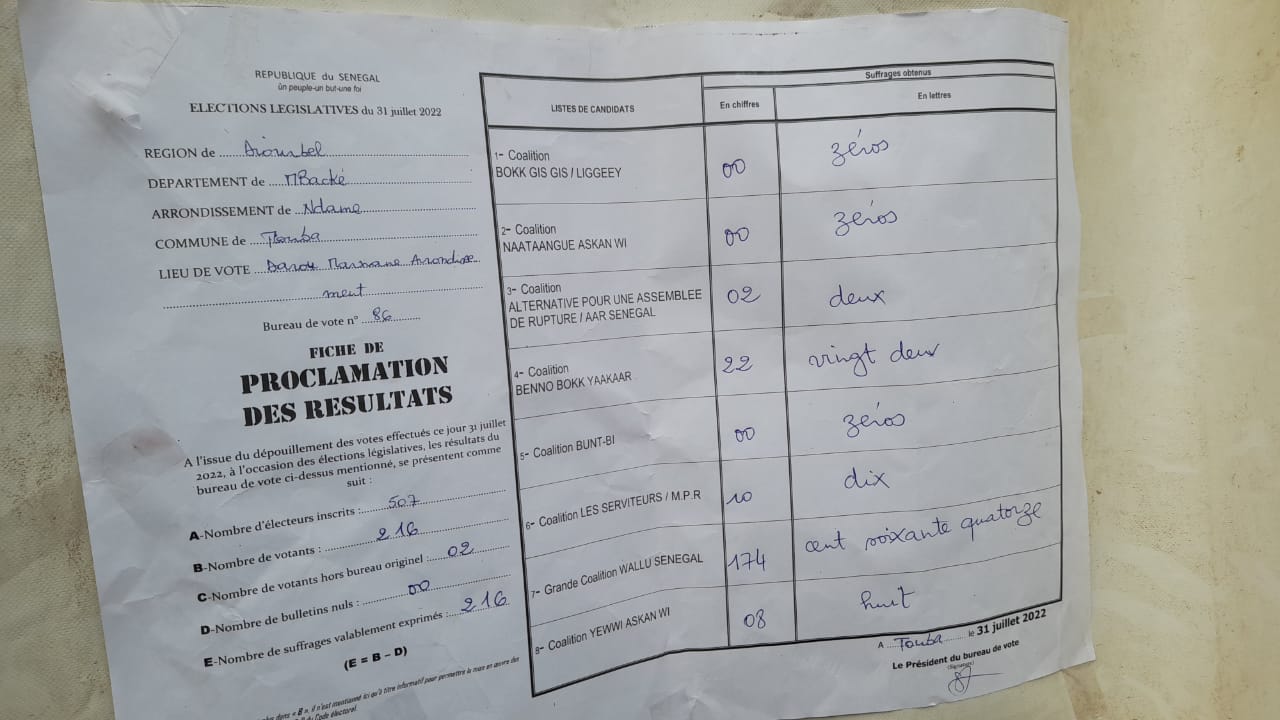 REPUBLIQUE du SENEGAL
un peuple-un but-une foi
ELECTIONS LEGISLATIVES du 31 juillet 2022
REGION de Diourbel
DEPARTEMENT de MBacké
ARRONDISSEMENT de Ndame
COMMUNE de Touba
LIEU DE VOTE Darou Marnane Arrondisse
ment
Bureau de vote n° 86
FICHE DE
PROCLAMATION
DES RESULTATS
A l'issue du dépouillement des votes effectués ce jour 31 juillet
2022, à l'occasion des élections législatives, les résultats du
bureau de vote ci-dessus mentionné, se présentent comme
suit :
A-Nombre d'électeurs inscrits : 507
B-Nombre de votants : 216
C-Nombre de votants hors bureau originel : 02
D-Nombre de bulletins nuls : 00
E-Nombre de suffrages valablement exprimés : 216
(E = B – D)
dans « B », il n'est mentionné ici qu'à titre informatif pour permettre la mise en œuvre des
du Code électoral.
LISTES DE CANDIDATS
Suffrages obtenus
En chiffres
En lettres
1- Coalition
BOKK GIS GIS / LIGGEEY
00
zéros
2- Coalition
NAATAANGUE ASKAN WI
00
zéros
3- Coalition
ALTERNATIVE POUR UNE ASSEMBLEE
DE RUPTURE / AAR SENEGAL
02
deux
4- Coalition
BENNO BOKK YAAKAAR
22
vingt deux
5- Coalition BUNT-BI
00
zéros
6- Coalition LES SERVITEURS / M.P.R
10
dix
7- Grande Coalition WALLU SENEGAL
174
cent soixante quatorze
8- Coalition YEWWI ASKAN WI
08
huit
A Touba le 31 juillet 2022
Le Président du bureau de vote
(Signature)